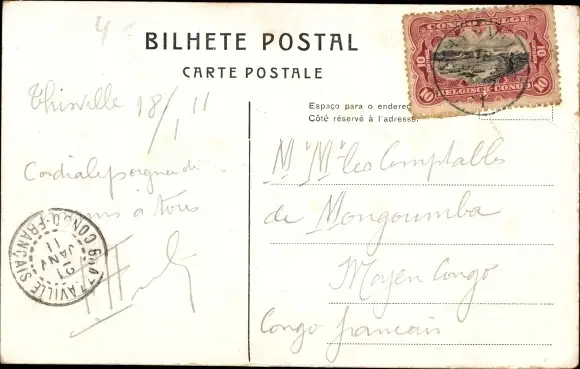 4
BILHETE POSTAL
CARTE POSTALE
Thisville 18/1 11
Cordiale poignée di
à tous
Espaço para o endereç
Côté réservé à l'adresse
CONGO BELGE
10 10
10 10
BELGISCH CONGO
Mrs Mrs les Comptables
de Mongoumba
Moyen Congo
Congo francais
CONGO-FRANÇAIS
21
JANV
11